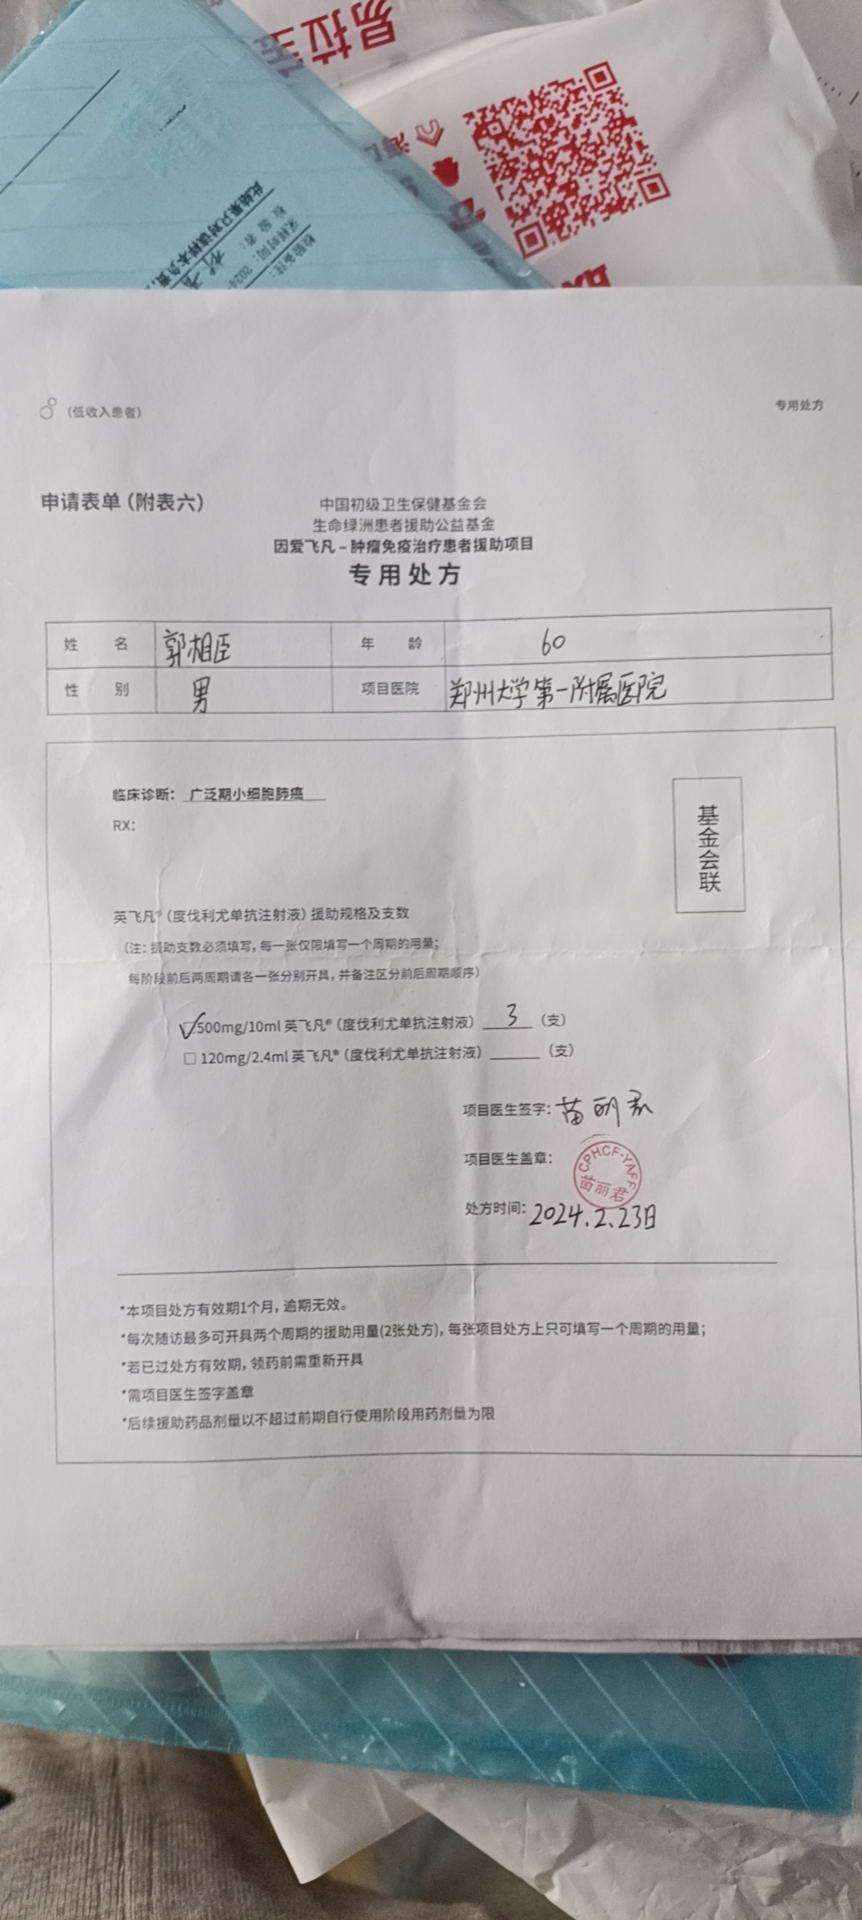 易拉宝
此结果只对该样本负责
检验者:
采样时间: 2024-
检验备注:
(低收入患者)
专用处方
申请表单(附表六)
中国初级卫生保健基金会
生命绿洲患者援助公益基金
因爱飞凡–肿瘤免疫治疗患者援助项目
专用处方
姓 名 郭相臣 年 龄 60
性 别 男 项目医院 郑州大学第一附属医院
临床诊断: 广泛期小细胞肺癌
RX:
基金会联
英飞凡®(度伐利尤单抗注射液)援助规格及支数
(注: 援助支数必须填写, 每一张仅限填写一个周期的用量;
每阶段前后两周期请各一张分别开具, 并备注区分前后周期顺序)
☑500mg/10ml 英飞凡®(度伐利尤单抗注射液) 3 (支)
□ 120mg/2.4ml 英飞凡®(度伐利尤单抗注射液) ______ (支)
项目医生签字: 苗丽君
项目医生盖章:
CPHCF-YAFF
苗丽君
处方时间: 2024.2.23日
*本项目处方有效期1个月, 逾期无效。
*每次随访最多可开具两个周期的援助用量(2张处方), 每张项目处方上只可填写一个周期的用量;
*若已过处方有效期, 领药前需重新开具
*需项目医生签字盖章
*后续援助药品剂量以不超过前期自行使用阶段用药剂量为限